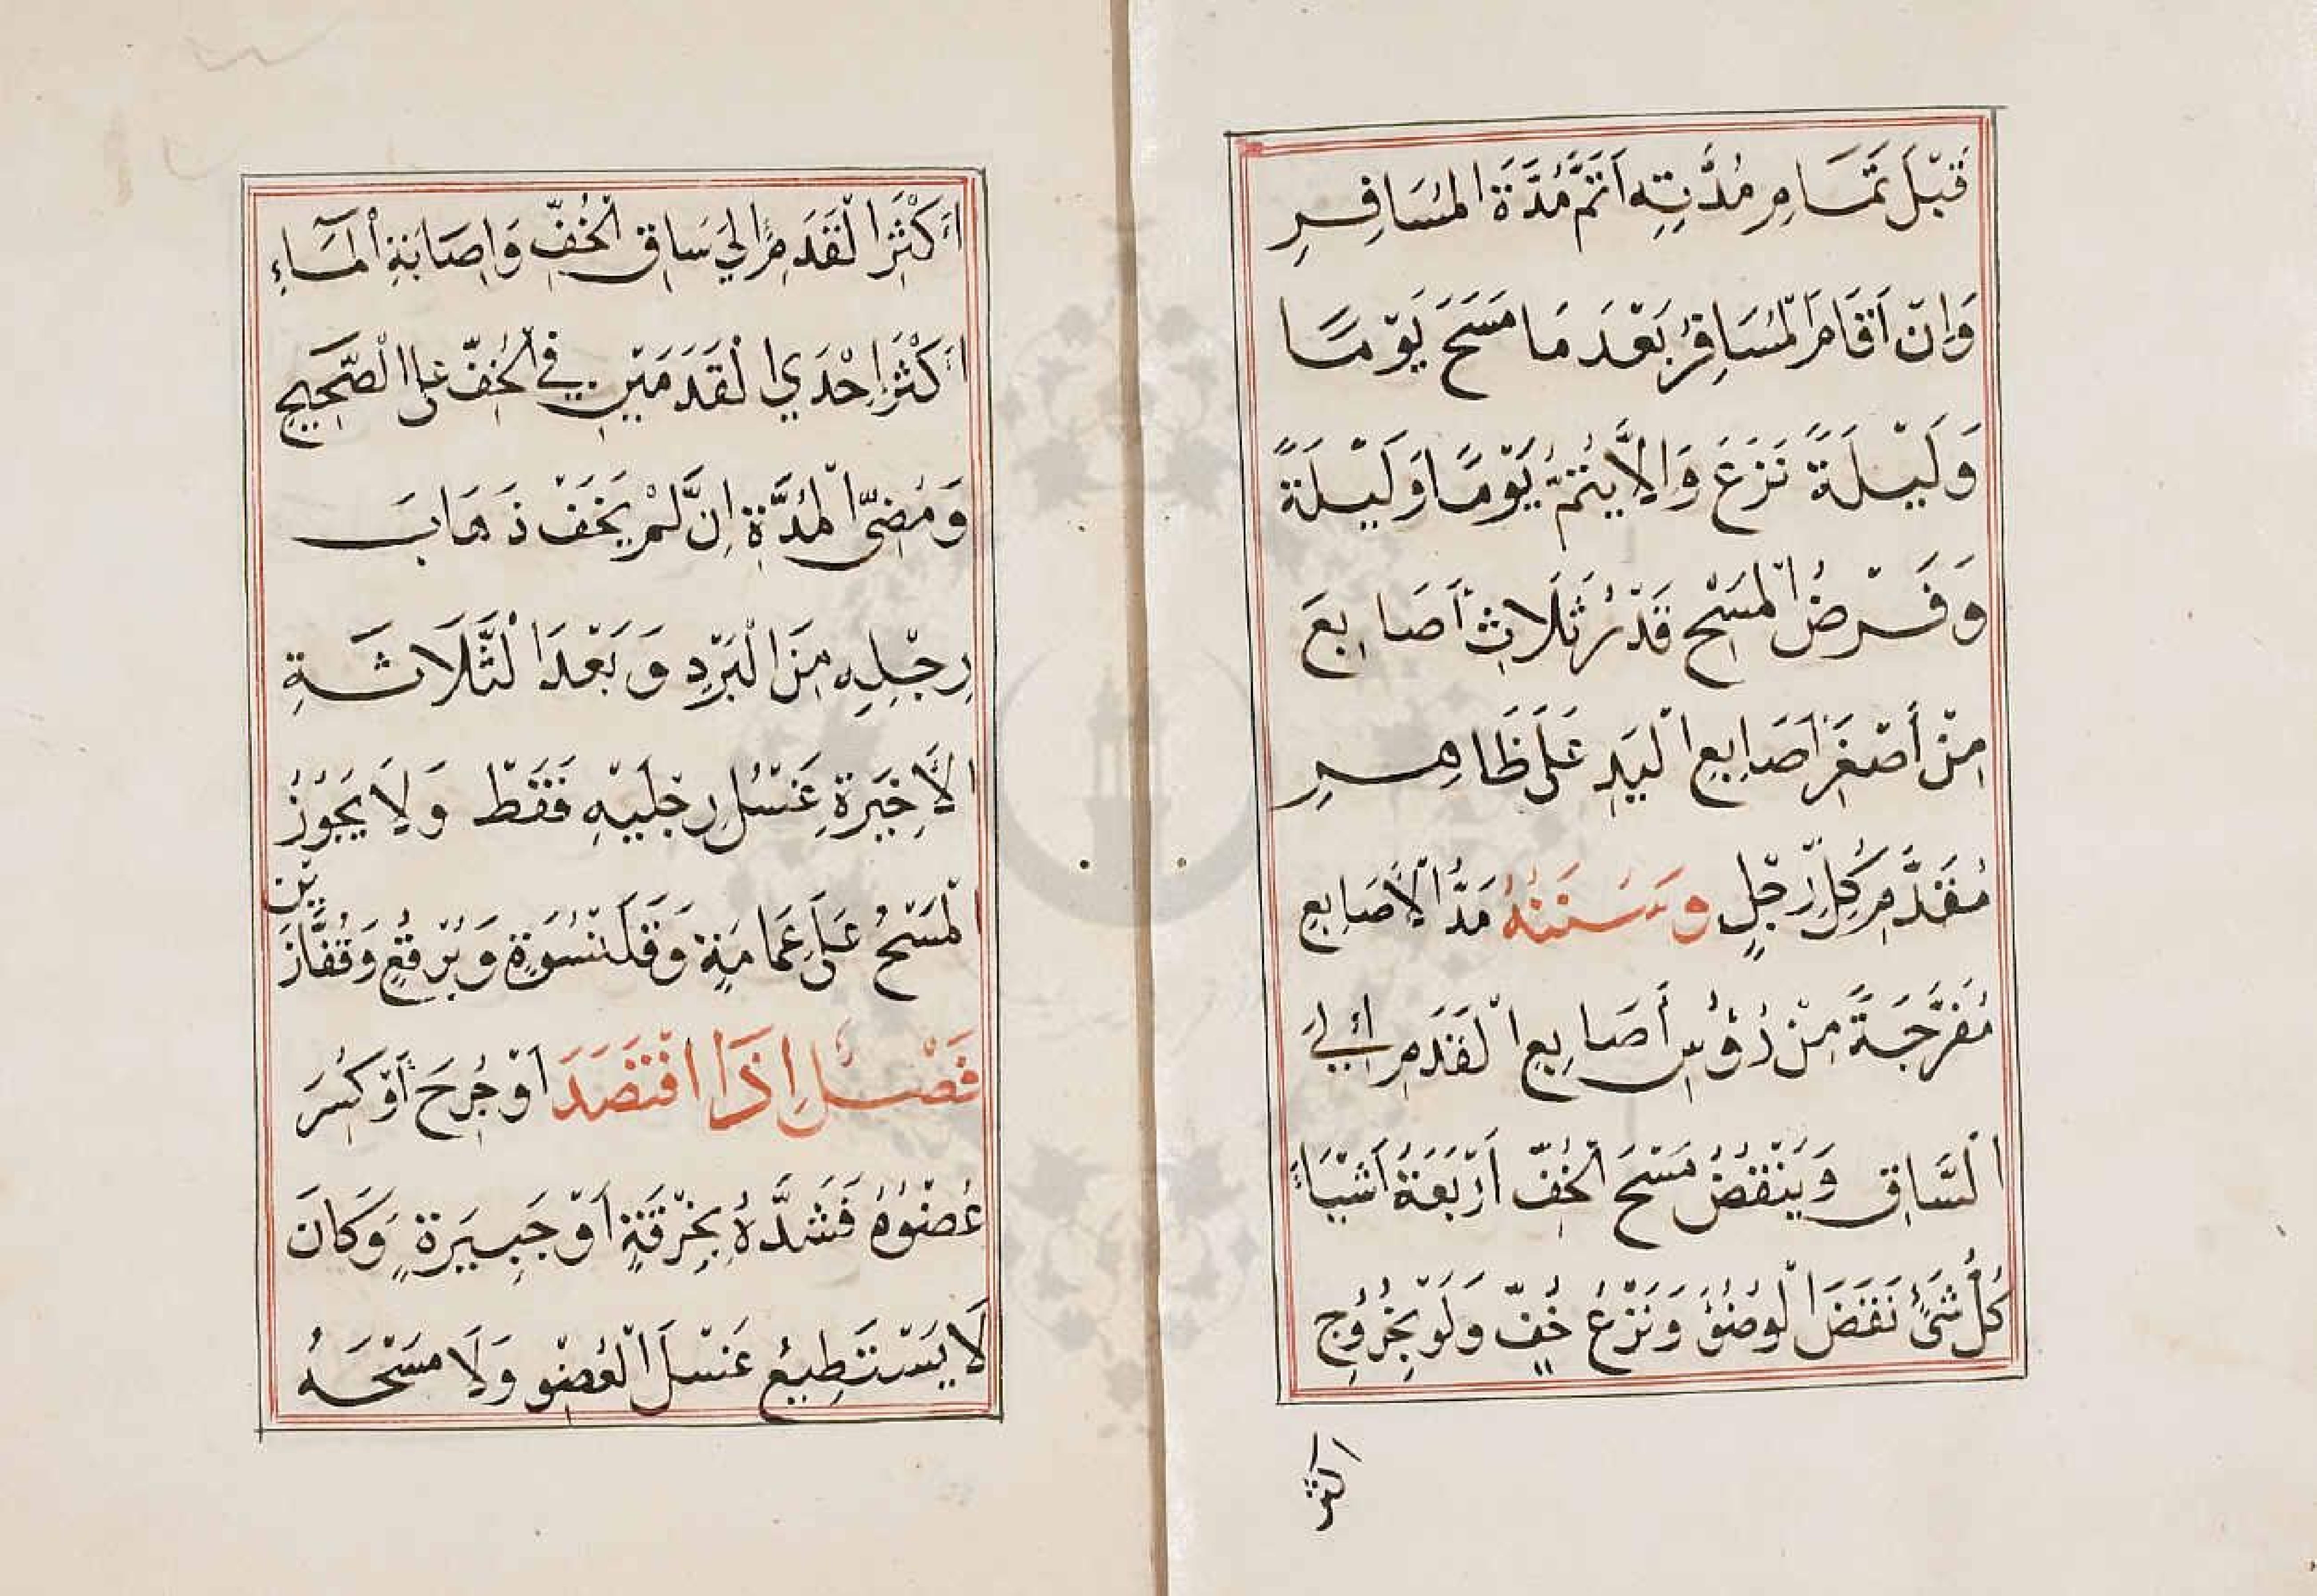 قَبْلَ تَمَامِ مُدَّتِهِ اَتَمَّ مُدَّةَ الْمُسَافِرِ
وَاِنْ اَقَامَ الْمُسَافِرُ بَعْدَ مَا مَسَحَ يَوْمًا
وَلَيْلَةً نَزَعَ وَاِلاَّ يُتِمُّ يَوْمًا وَلَيْلَةً
وَفَرْضُ الْمَسْحِ قَدْرُ ثَلَاثِ أَصَابِعَ
مِنْ أَصْغَرِ اَصَابِعِ الْيَدِ عَلَى ظَاهِرِ
مُقَدَّمِ كُلِّ رِجْلٍ وَسُنَنُهُ مَدُّ الْاَصَابِعِ
مُفَرَّجَةً مِنْ رُؤُسِ أَصَابِعِ الْقَدَمِ اِلَى
السَّاقِ وَيَنْقُضُ مَسْحَ الْخُفِّ اَرْبَعَةُ اَشْيَاءَ
كُلُّ شَئٍ نَقَضَ الْوُضُوءَ وَنَزْعُ خُفٍّ وَلَوْ بِخُرُوجِ
اكثر
اَكْثَرِ الْقَدَمِ اِلَي سَاقِ الْخُفِّ وَاِصَابَةِ الْمَآءِ
اَكْثَرَ اِحْدَي الْقَدَمَيْنِ فِي الْخُفِّ عَلَى الصَّحِيحِ
وَمُضِىُّ الْمُدَّةِ اِنْ لَّمْ يَخَفْ ذَهَابَ
رِجْلِهِ مِنَ الْبَرْدِ وَبَعْدَ الثَّلَاثَةِ
الْاَخِيرَةِ غَسْلُ رِجْلَيْهِ فَقَطْ وَلَا يَجُوزُ
الْمَسْحُ عَلَى عِمَامَةٍ وَقَلَنْسُوَةٍ وَبُرْقُعٍ وَقُفَّازَيْنِ
فَصْلٌ اِذَا افْتَصَدَ اَوْ جُرِحَ اَوْ كُسِرَ
عُضْوُهُ فَشَدَّهُ بِخِرْقَةٍ اَوْ جَبِيرَةٍ وَكَانَ
لَا يَسْتَطِيعُ غَسْلَ الْعُضْوِ وَلَا مَسْحَهُ